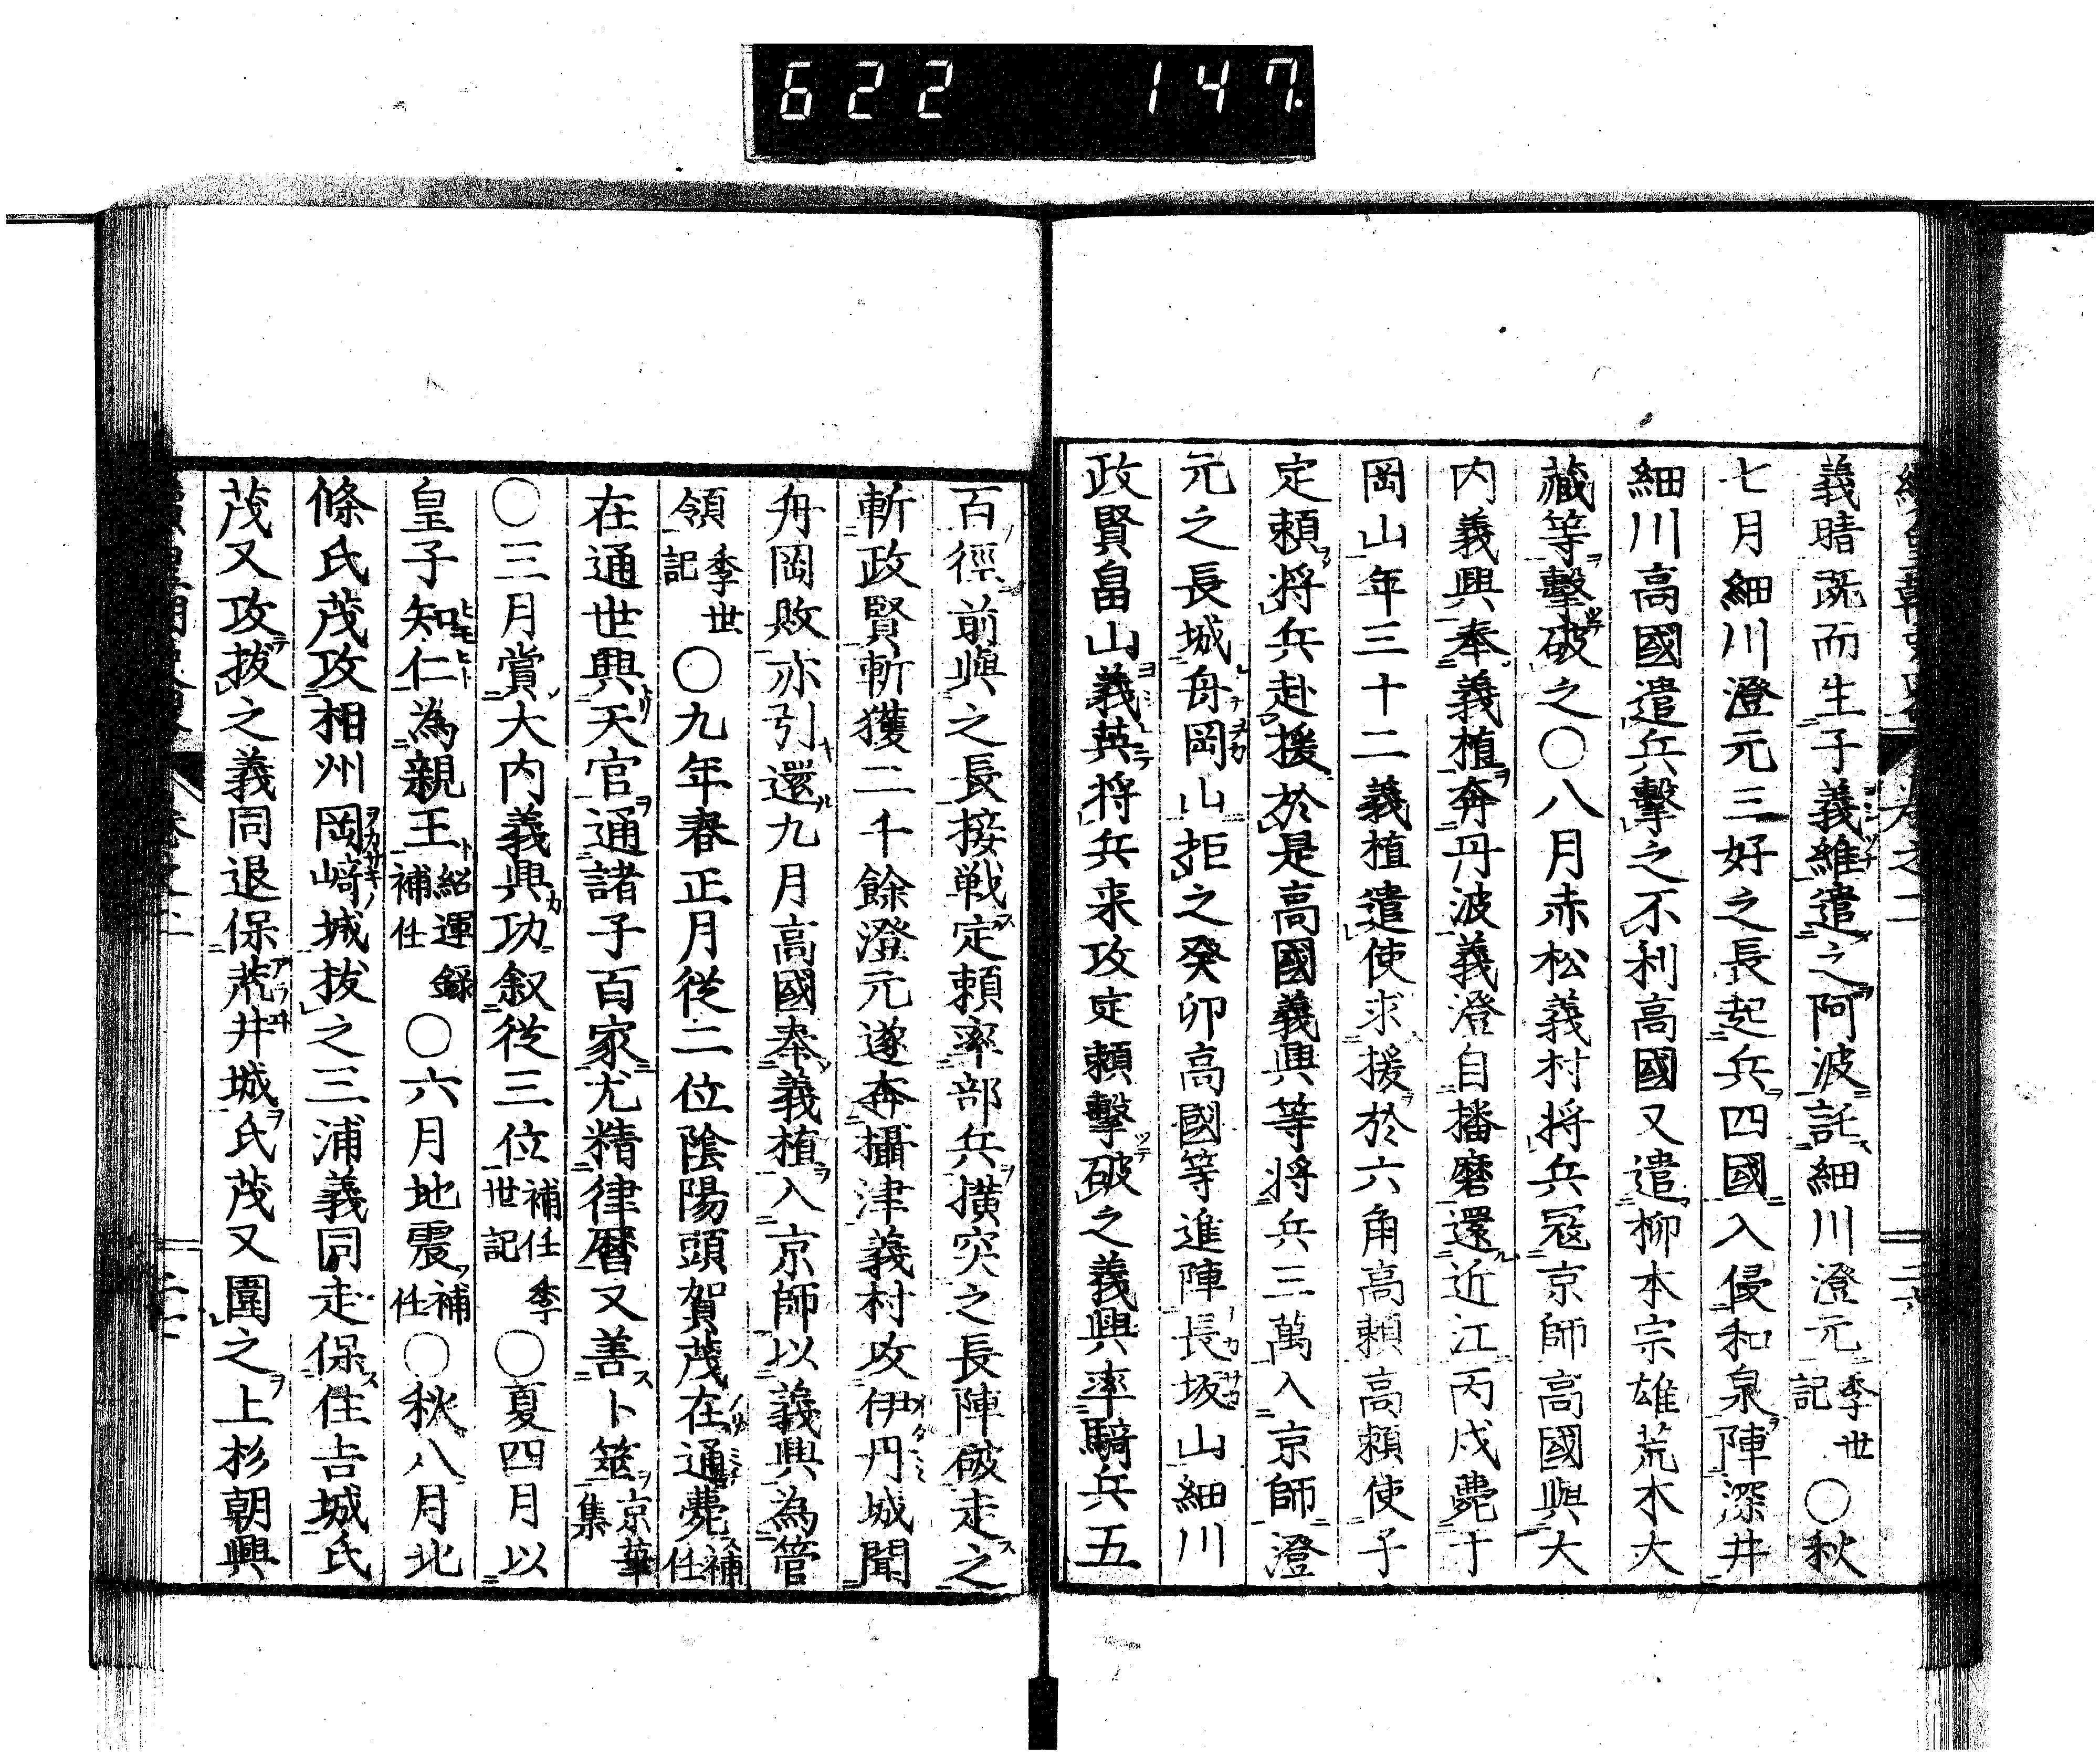 622 147.
義晴既而生子義維遣之阿波託細川澄元季世記○秋
七月細川澄元三好之長起兵四國入侵和泉陣深井
細川高國遣兵擊之不利高國又遣柳本宗雄荒木大
藏等擊破之○八月赤松義村将兵冦京師高國與大
内義興奉義植奔丹波義澄自播磨還近江丙戌薨于
岡山年三十二義植遣使求援於六角高頼高頼使子
定頼将兵赴援於是高國義興等将兵三萬入京師澄
元之長城舟岡山拒之癸卯高國等進陣長坂山細川
政賢畠山義英将兵来攻定頼擊破之義興率騎兵五
百徑前與之長接戦定頼率部兵撗突之長陣破走之
斬政賢斬獲二千餘澄元遂奔攝津義村攻伊丹城聞
舟岡敗亦引還九月高國奉義植入京師以義興為管
領季世記○九年春正月從二位陰陽頭賀茂在通薨補任
在通世興天官通諸子百家尤精律暦又善卜筮京華集
○三月賞大内義興功叙從三位補任季世記○夏四月以
皇子知仁為親王紹運録補任○六月地震補任○秋八月北
條氏茂攻相州岡﨑城拔之三浦義同走保住吉城氏
茂又攻拔之義同退保荒井城氏茂又圍之上杉朝興